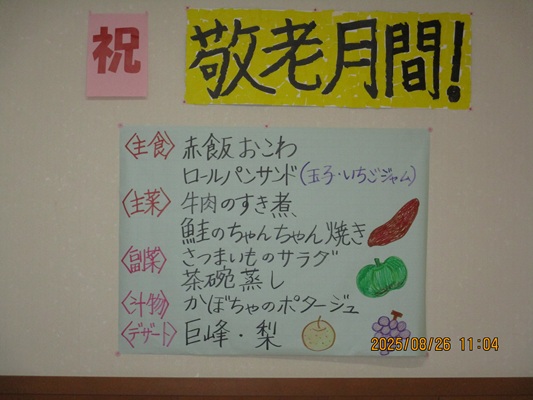 祝
敬老月間!
〈主食〉 赤飯おこわ
ロールパンサンド(玉子・いちごジャム)
〈主菜〉 牛肉のすき煮
鮭のちゃんちゃん焼き
〈副菜〉 さつまいものサラダ
茶碗蒸し
〈汁物〉 かぼちゃのポタージュ
〈デザート〉 巨峰・梨
2025/08/26 11:04